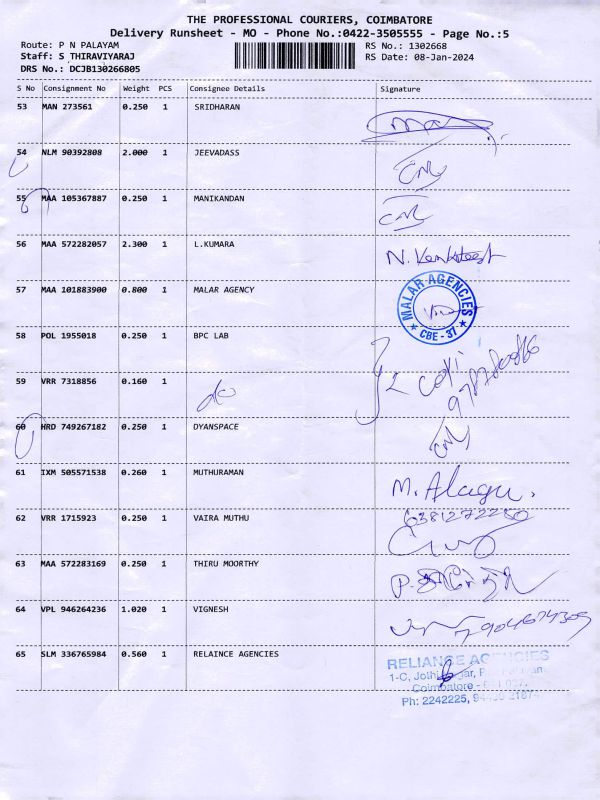 THE PROFESSIONAL COURIERS, COIMBATORE
Delivery Runsheet - MO - Phone No.:0422-3505555 - Page No.:5
Route: P N PALAYAM RS No.: 1302668
Staff: S THIRAVIYARAJ RS Date: 08-Jan-2024
DRS No.: DCJB130266805
S No Consignment No Weight PCS Consignee Details Signature
53 MAN 273561 0.250 1 SRIDHARAN
54 NLM 90392808 2.000 1 JEEVADASS
55 MAA 105367887 0.250 1 MANIKANDAN
56 MAA 572282057 2.300 1 L.KUMARA
57 MAA 101883900 0.800 1 MALAR AGENCY
MALAR AGENCIES
★ CBE - 37 ★
58 POL 1955018 0.250 1 BPC LAB
59 VRR 7318856 0.160 1 do
60 HRD 749267182 0.250 1 DYANSPACE
61 IXM 505571538 0.260 1 MUTHURAMAN M. Alagu.
62 VRR 1715923 0.250 1 VAIRA MUTHU
63 MAA 572283169 0.250 1 THIRU MOORTHY
64 VPL 946264236 1.020 1 VIGNESH
65 SLM 336765984 0.560 1 RELAINCE AGENCIES
RELIANCE AGENCIES
1-C, Jothi
Coimbatore
Ph: 2242225,